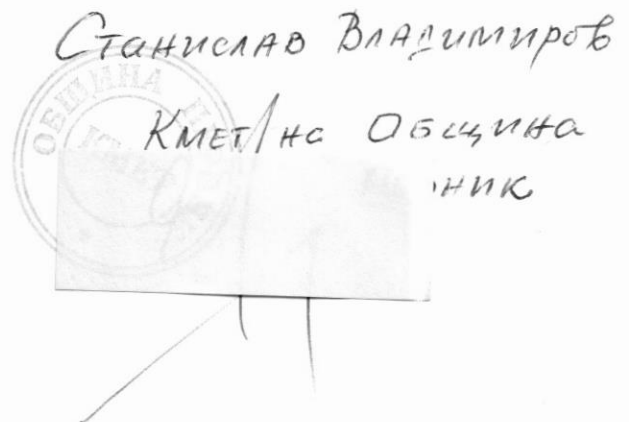 Станислав Владимиров
Кмет на Община
ник
ОБЩИНА
КМЕТ